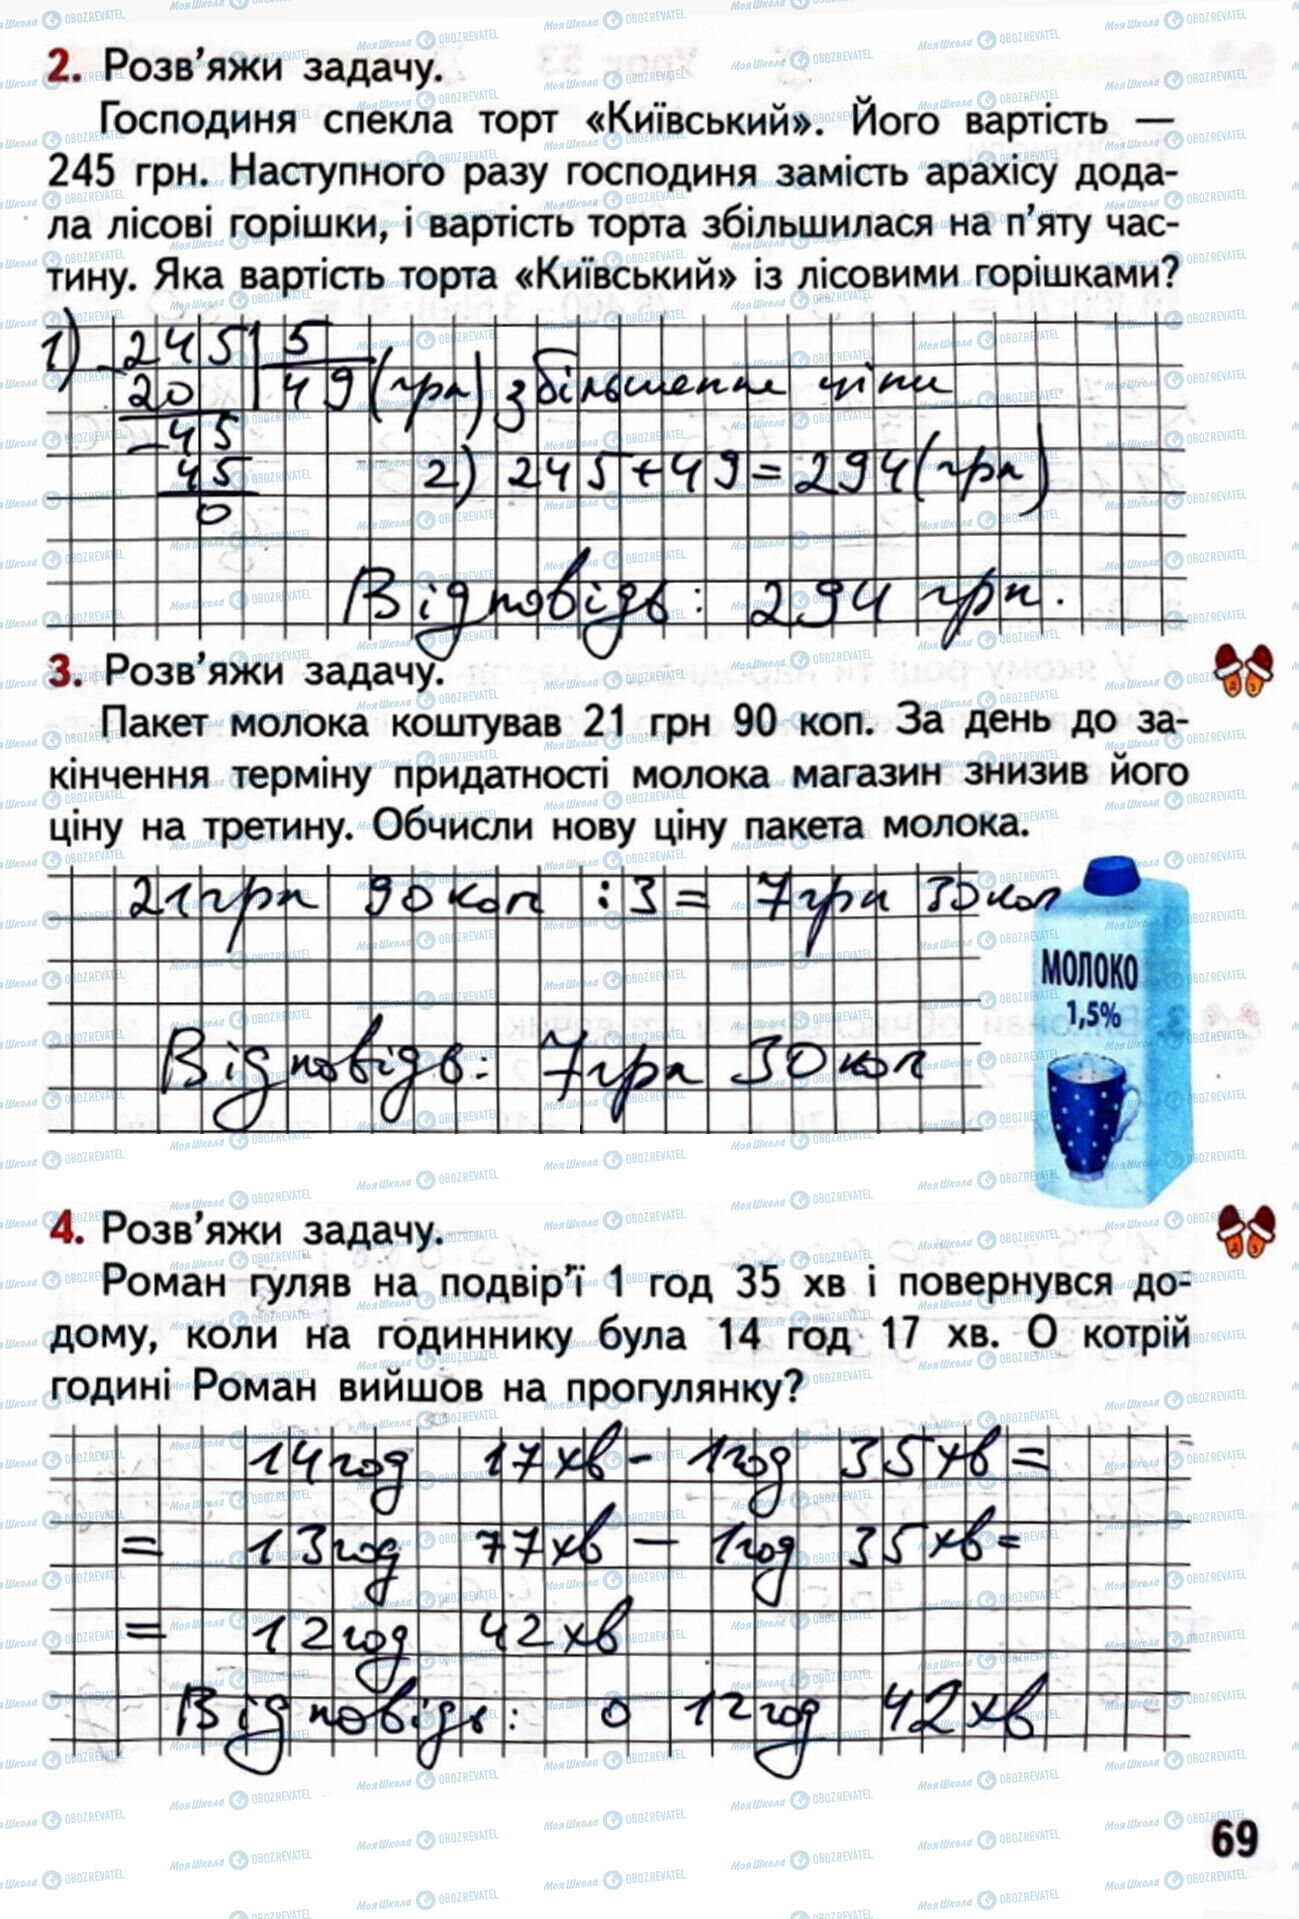 2. Розв'яжи задачу.
Господиня спекла торт «Київський». Його вартість —
245 грн. Наступного разу господиня замість арахісу дода-
ла лісові горішки, і вартість торта збільшилася на п'яту час-
тину. Яка вартість торта «Київський» із лісовими горішками?
1) - 245 | 5
20 | 49 (грн) збільшення ціни
- 45
45
0
2) 245 + 49 = 294 (грн)
Відповідь: 294 грн.
3. Розв'яжи задачу.
Пакет молока коштував 21 грн 90 коп. За день до за-
кінчення терміну придатності молока магазин знизив його
ціну на третину. Обчисли нову ціну пакета молока.
21 грн 90 коп : 3 = 7 грн 30 коп
Відповідь: 7 грн 30 коп
МОЛОКО
1,5%
4. Розв'яжи задачу.
Роман гуляв на подвір'ї 1 год 35 хв і повернувся до-
дому, коли на годиннику була 14 год 17 хв. О котрій
годині Роман вийшов на прогулянку?
14 год 17 хв - 1 год 35 хв =
= 13 год 77 хв - 1 год 35 хв =
= 12 год 42 хв
Відповідь: о 12 год 42 хв
69
МояШкола OBOZREVATEL